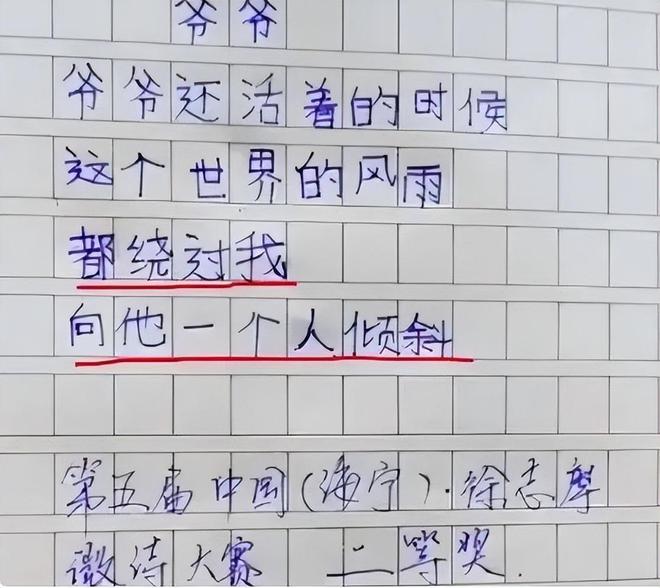 爷爷
爷爷还活着的时候
这个世界的风雨
都绕过我
向他一个人倾斜
第五届中国(海宁)·徐志摩
微诗大赛 二等奖.